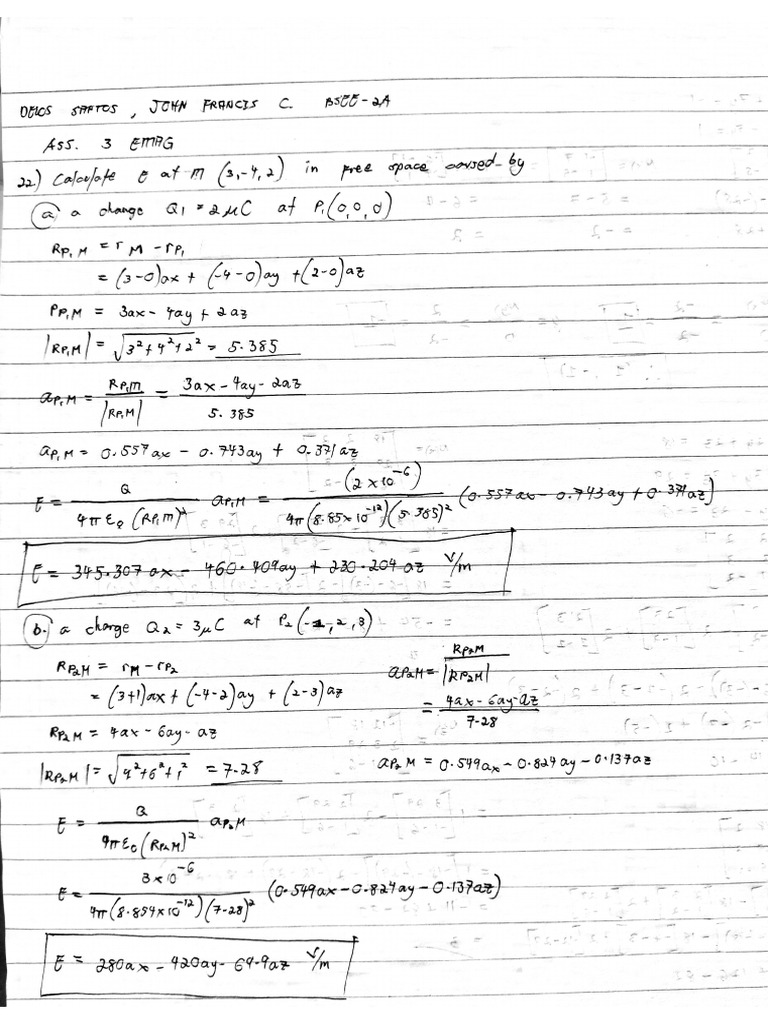 DELOS SANTOS, JOHN FRANCIS C. BSEE-2A
ASS. 3 EMAG
22.) Calculate E at M (3,-4,2) in free space caused by
(a) a charge Q1 = 2 μC at P1(0,0,0)
RP1M = rM - rP1
= (3-0)ax + (-4-0)ay + (2-0)az
RP1M = 3ax - 4ay + 2az
|RP1M| = √3² + 4² + 2² = 5.385
aP1M = RP1M / |RP1M| = 3ax - 4ay - 2az / 5.385
aP1M = 0.557ax - 0.743ay + 0.371az
E = Q / 4πε0 (RP1M)² aP1M = (2x10^-6) / 4π(8.85x10^-12)(5.385)² (0.557ax - 0.743ay + 0.371az)
E = 345.307ax - 460.409ay + 230.204az V/m
(b.) a charge Q2 = 3μC at P2(-1,2,3)
RP2M = rM - rP2
= (3+1)ax + (-4-2)ay + (2-3)az
RP2M = 4ax - 6ay - az
|RP2M| = √4² + 6² + 1² = 7.28
aP2M = RP2M / |RP2M|
= 4ax - 6ay - az / 7.28
aP2M = 0.549ax - 0.824ay - 0.137az
E = Q / 4πε0(RP2M)² aP2M
E = 3x10^-6 / 4π(8.854x10^-12)(7.28)² (0.549ax - 0.824ay - 0.137az)
E = 280ax - 420ay - 69.9az V/m